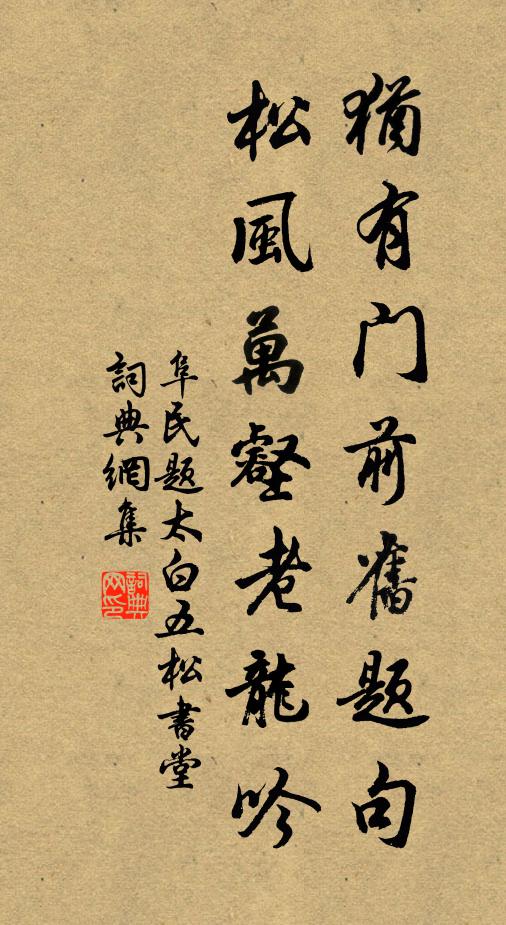 猶有門前舊題句
松風萬壑老龍吟
阜民題太白五松書堂
詞典網集
詞典
网印